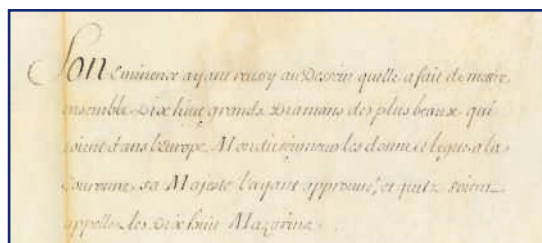 Son Eminence ayant reussy au Dessein quelle a fait de mettre
ensemble Dix huict grands Diamans des plus beaux qui
soient dans l'europe, Mondit seigneur les donne et legue a la
Couronne, sa Majesté l'ayant approuué, et quilz soient
appellez les Dix huict Mazarins